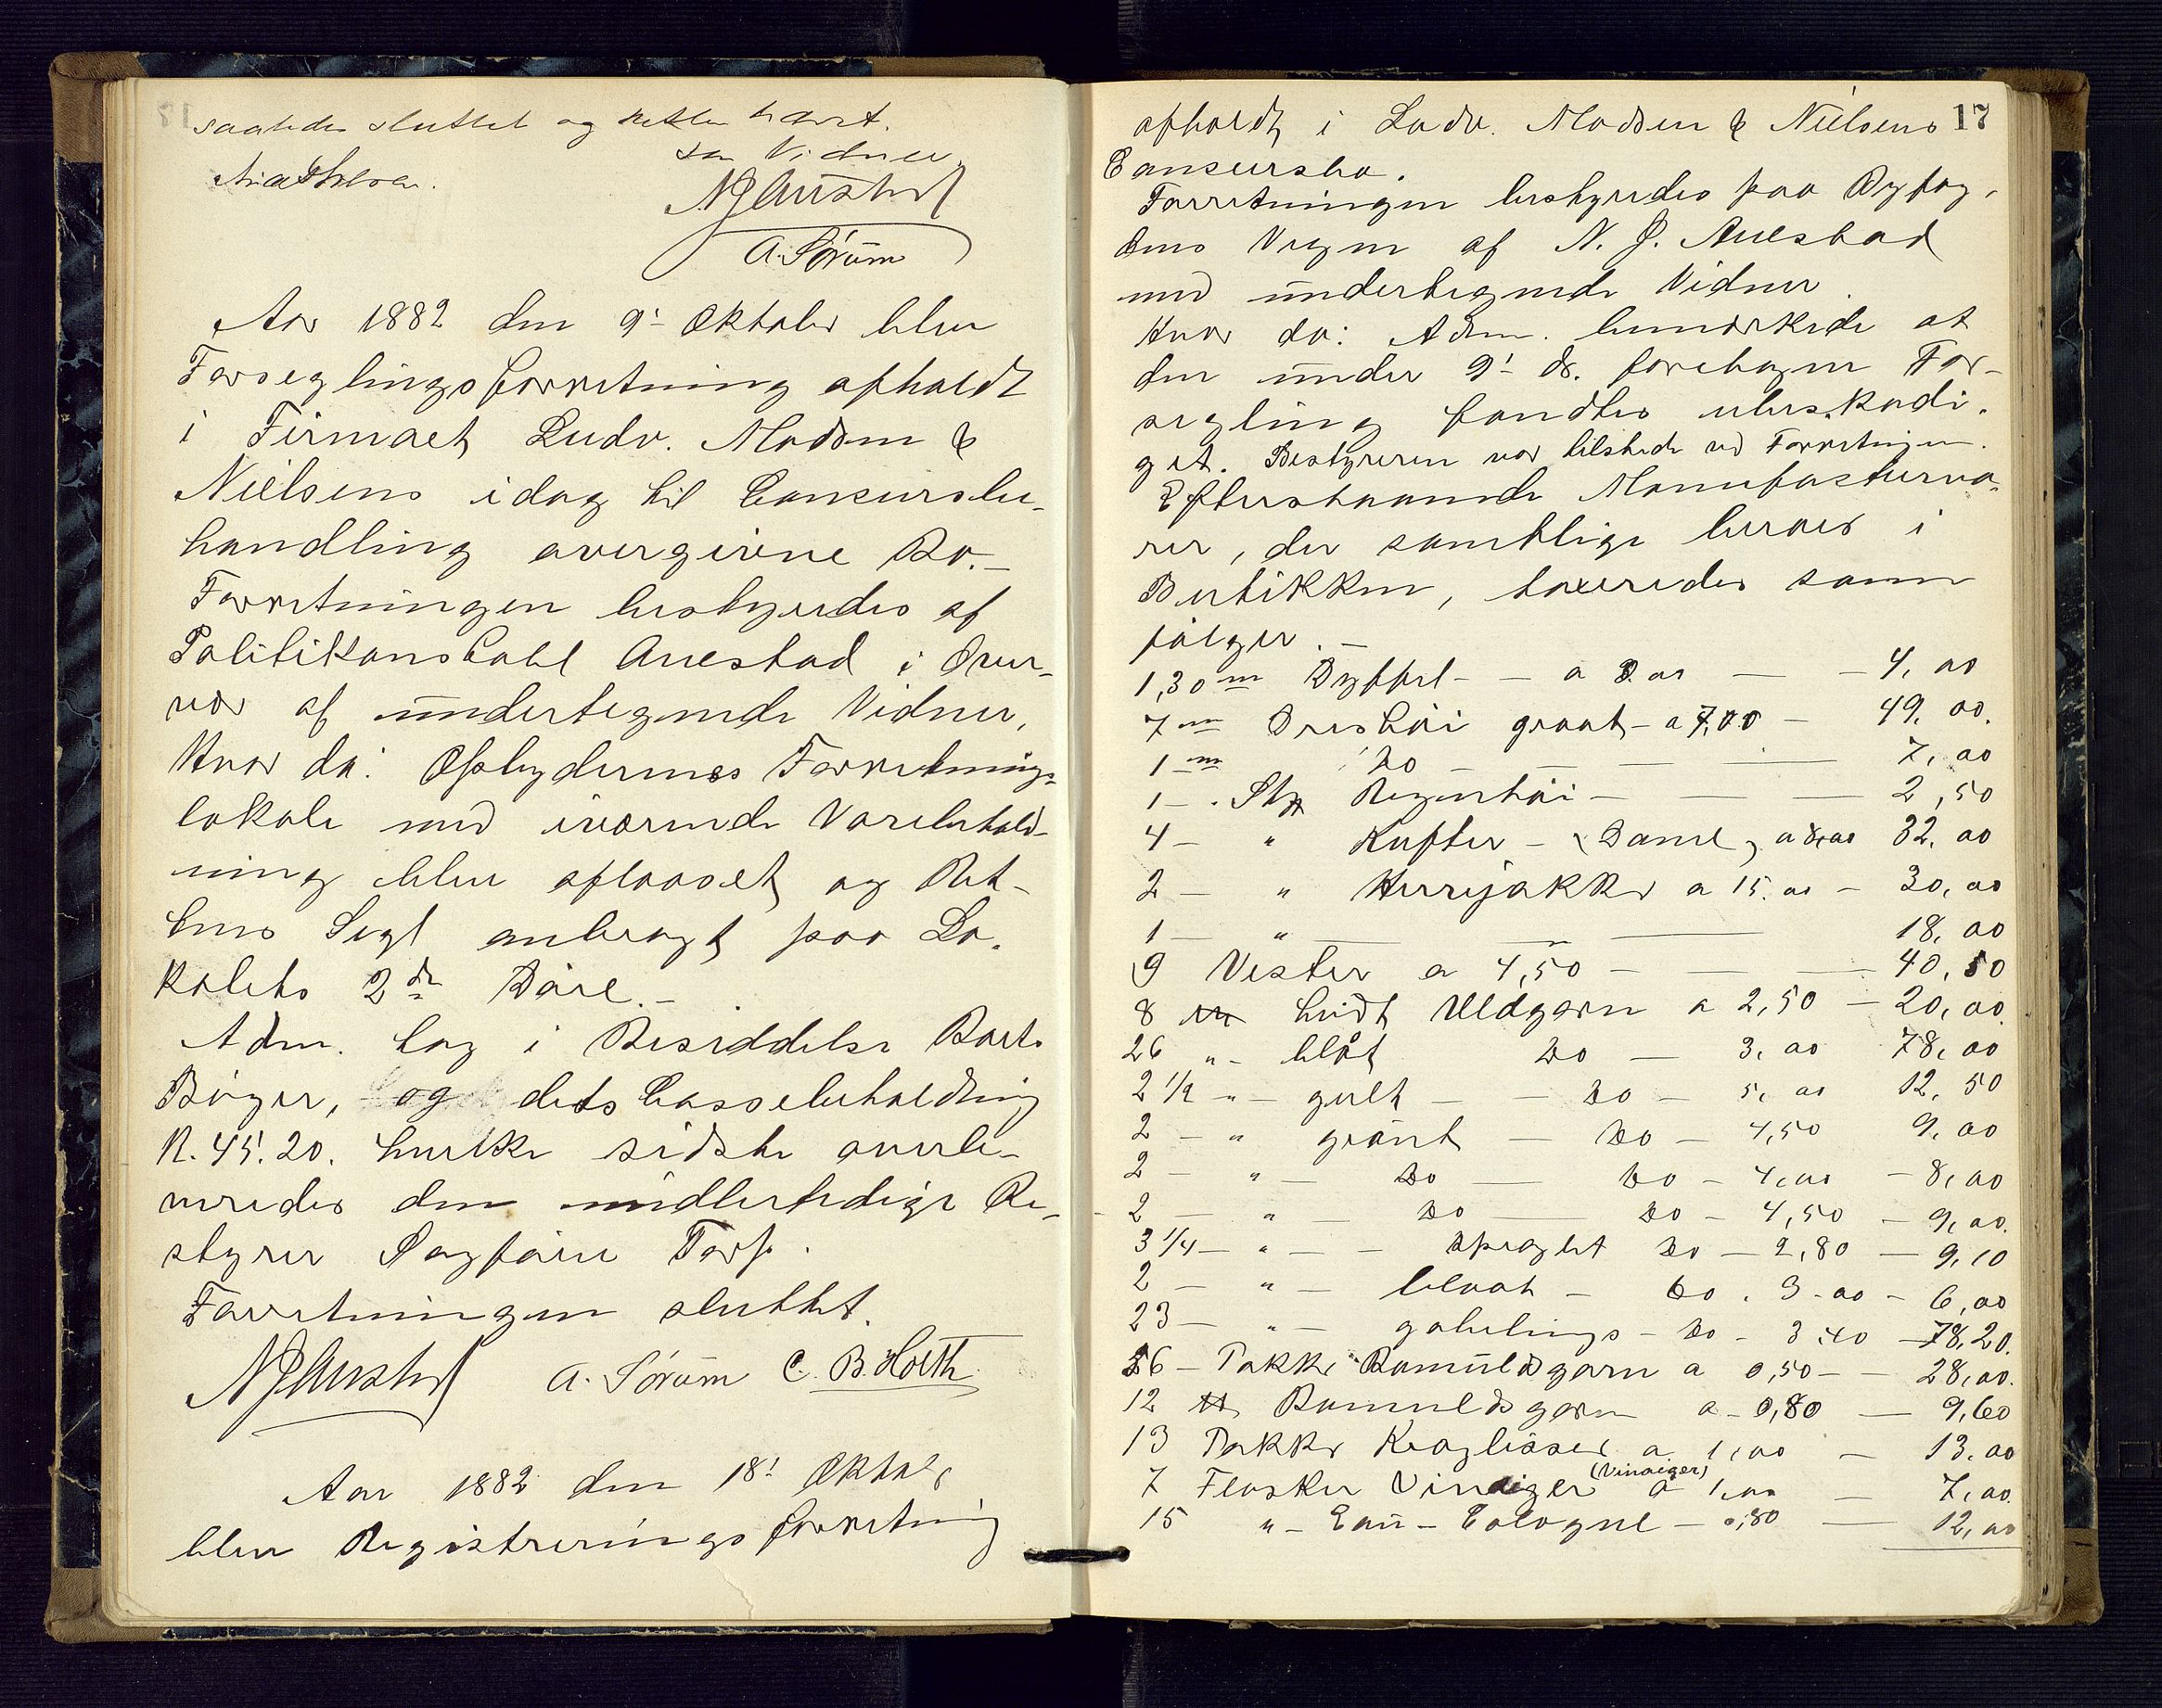 saaledes sluttet og Retten hævet.
som Vidner
NJAuestad
A. Sörum
Aar 1882 den 9' Oktober blev
Forseglingsforretning afholdt
i Firmaet Ludv. Madsen &
Nielsens idag til Concursbe-
handling overgivne Bo.-
Forretningen bestyredes af
Politikonstabel Auestad i Over-
vær af undertegnede Vidner,
Hvor da: Opbydernes Forretnings-
lokale med iværende Varebehold-
ning blev aflaaset og Ret-
tens Segl anbragt paa Lo-
kalets 2de Döre.-
Adm. tog i Besiddelse Boets
Böger, og dets Cassebeholdning
K. 45.20. hvilke sidste overle-
veredes den midlertidige Be-
styrer Sagförer Torp.
Forretningen sluttet.
NJAuestad A. Sörum C. B. Holth
Aar 1882 den 18' Oktober
blev Registreringsforretning
17
afholdt i Ludv. Madsen & Nielsens
Concursbo.
Forretningen bestyredes paa Byfog-
dens Vegne af N. J. Auestad
med undertegnede Vidner.
Hvor da: Adm. bemærkede at
den under 9' ds. foretagne For-
segling fandtes ubeskadi-
get. Bestyreren var tilstede ved Forretningen.
Efterstaaende Manufacturva-
rer, der samtlige beroer i
Butikken, taxeredes som
fölger.-
1,30 m Dyffel - - a 3.00 - - 4,00
7 m Dresstöi graat - a 7,00 - 49,00.
1 m Do - - - 7,00
1 - Stk Regntöi - - - 2,50
4 - " Kufter - (Dame) a 8,00 32,00
2 - " Herrejakker a 15.00 - 30,00
1 - " - - - 18,00
9 Vester a 4,50 - - 40,50
8 ℔ hvidt Uldgarn a 2,50 - 20,00.
26 " - blåt Do - 3,00 78,00
2 1/2 " - gult - - Do - 5,00 12,50
2 - " grönt - Do - 4,50 9,00
2 - " - Do - Do - 4,00 - 8,00
2 - " - Do - Do - 4,50 - 9,00.
3 1/4 - " - - spraglet Do - 2,80 - 9,10
2 - " - blaat - Do. 3-00 - 6,00
23 - " - gobelings - Do - 3.40 - 78,20.
56 - Pakker Bomuldsgarn a 0,50 - - 28,00.
12 ℔ Bomuldsgarn a - 0,80 - 9,60
13 Pakker Kraglisser a 1,00 - 13,00
(Vinaiger)
7 Flasker Vinaiger a 1,00 - 7,00.
15 " - Eau - Cologne - 0,80 - 12,00